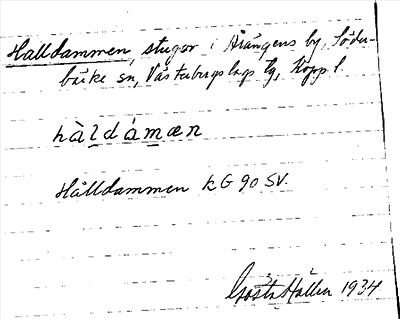 Halldammen, stugor i Årängens by, Söder-
bärke sn, Västerbergslags tg, Kopp l.
hàldámæn
Hålldammen kG 90 SV.
Gösta Hallen 1934